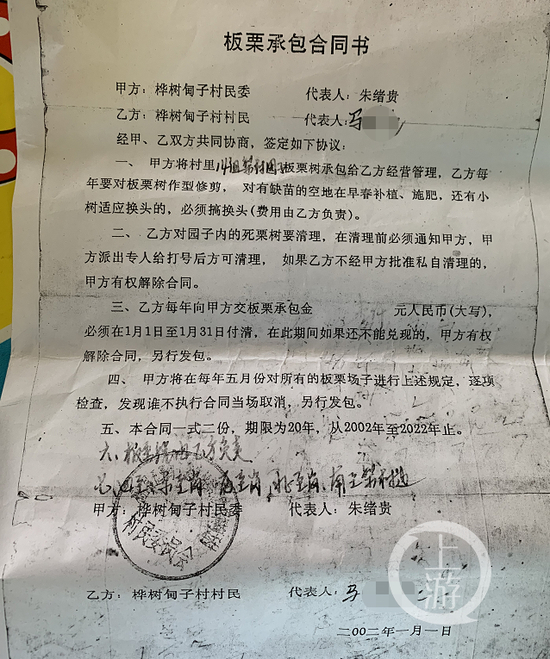 板栗承包合同书
甲方：桦树甸子村民委 代表人：朱绪贵
乙方：桦树甸子村村民 代表人：马
经甲、乙双方共同协商，签定如下协议：
一、甲方将村里 板栗树承包给乙方经营管理，乙方每
年要对板栗树作型修剪，对有缺苗的空地在早春补植、施肥，还有小
树适应换头的，必须搞换头(费用由乙方负责)。
二、乙方对园子内的死栗树要清理，在清理前必须通知甲方，甲
方派出专人给打号后方可清理，如果乙方不经甲方批准私自清理的，
甲方有权解除合同。
三、乙方每年向甲方交板栗承包金 元人民币(大写)，
必须在1月1日至1月31日付清，在此期间如果还不能兑现的，甲方有权
解除合同，另行发包。
四、甲方将在每年五月份对所有的板栗场子进行上述规定，逐项
检查，发现谁不执行合同当场取消，另行发包。
五、本合同一式二份，期限为20年，从2002年至2022年止。
六、 乙方负责
甲方：桦树甸子村民委 代表人：朱绪贵
村民委员会
乙方：桦树甸子村村民 代表人：马
二00二年一月一日
上游